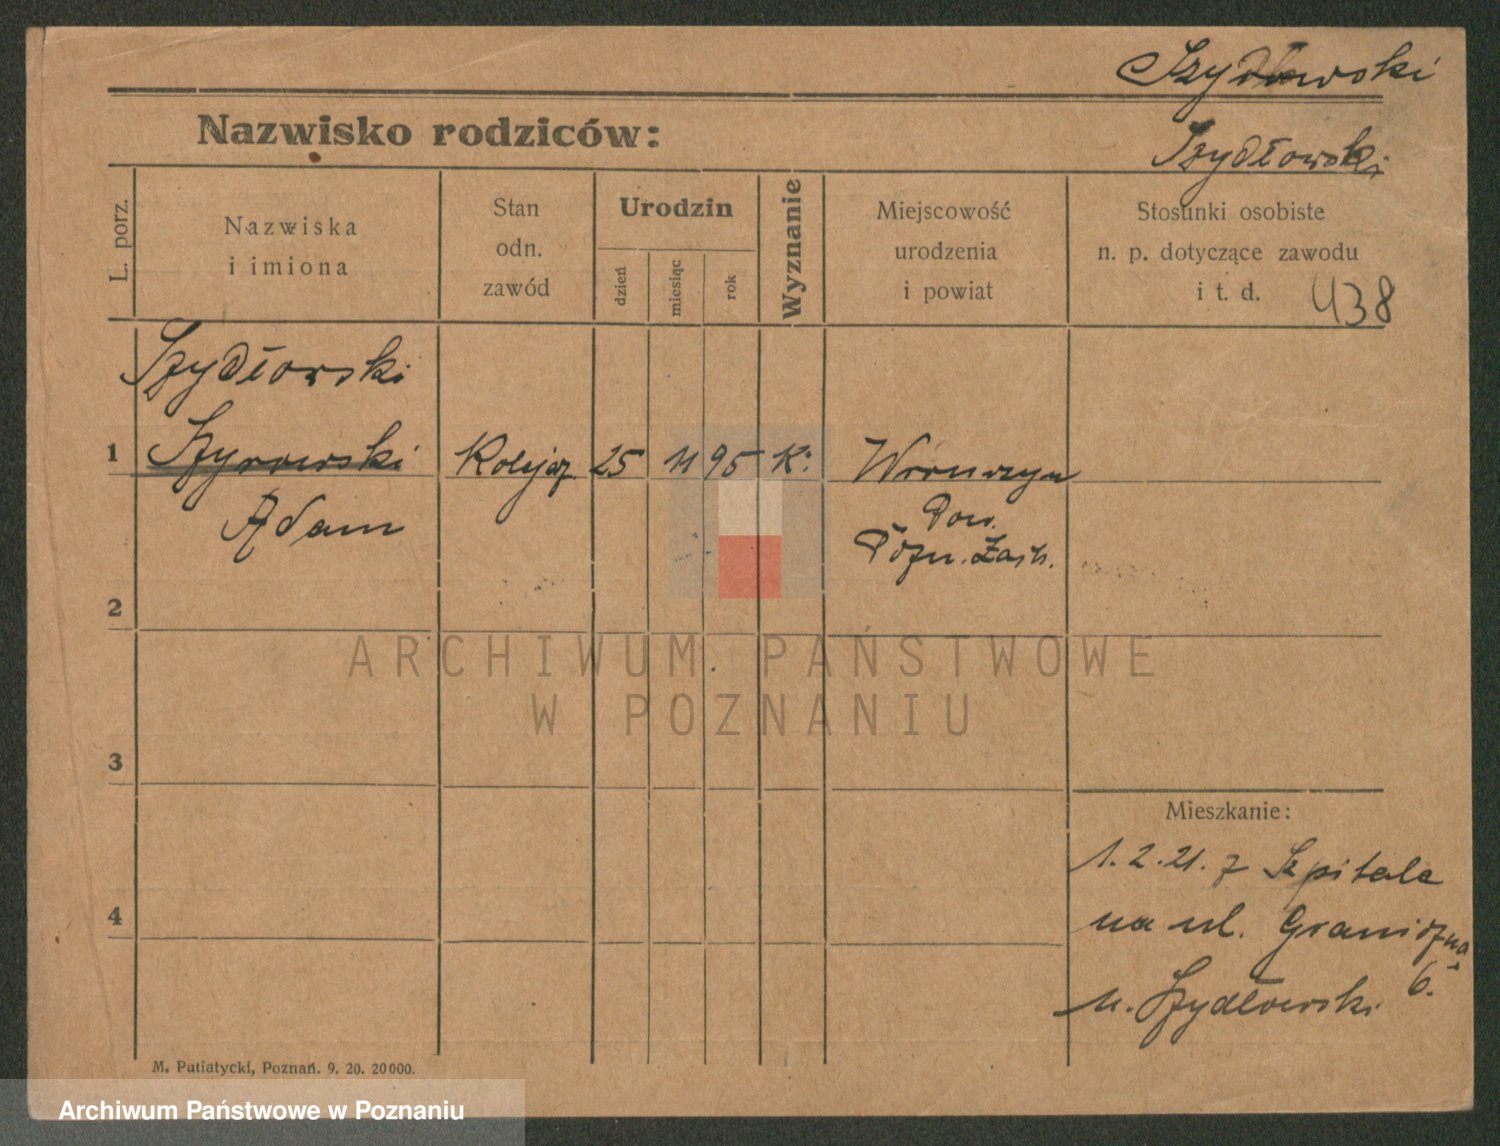 Szydłowski
Nazwisko rodziców:
Szydłowski
L. porz.
Nazwiska
i imiona
Stan
odn.
zawód
Urodzin
dzień
miesiąc
rok
Wyznanie
Miejscowość
urodzenia
i powiat
Stosunki osobiste
n. p. dotyczące zawodu
i t. d.
438
Szydłowski
1
Kolejarz
25
11
95
K.
Adam
Pow.
Pozn. Zach.
2
ARCHIWUM PAŃSTWOWE
W POZNANIU
3
Mieszkanie:
1.2.21. z Szpitala
4
na ul. Graniczna
6.
u. Szydłowski
M. Putiatycki, Poznań. 9. 20. 20000.
Archiwum Państwowe w Poznaniu